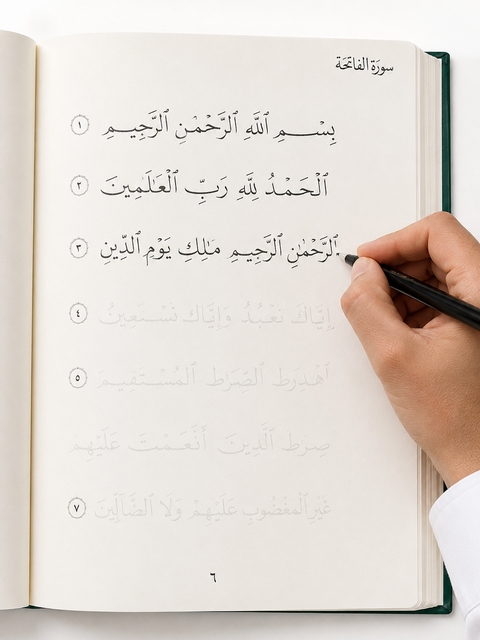 سورة الفاتحة
بِسْمِ ٱللَّهِ ٱلرَّحْمَٰنِ ٱلرَّحِيمِ ١
ٱلْحَمْدُ لِلَّهِ رَبِّ ٱلْعَٰلَمِينَ ٢
ٱلرَّحْمَٰنِ ٱلرَّحِيمِ مَٰلِكِ يَوْمِ ٱلدِّينِ ٣
إِيَّاكَ نَعْبُدُ وَإِيَّاكَ نَسْتَعِينُ ٤
ٱلصِّرَٰط ٥
صِرَٰط ٱلَّذِينَ أَنْعَمْتَ عَلَيْهِمْ
غَيْرِ ٱلْمَغْضُوبِ عَلَيْهِمْ وَلَا ٱلضَّالِّينَ ٧
٦